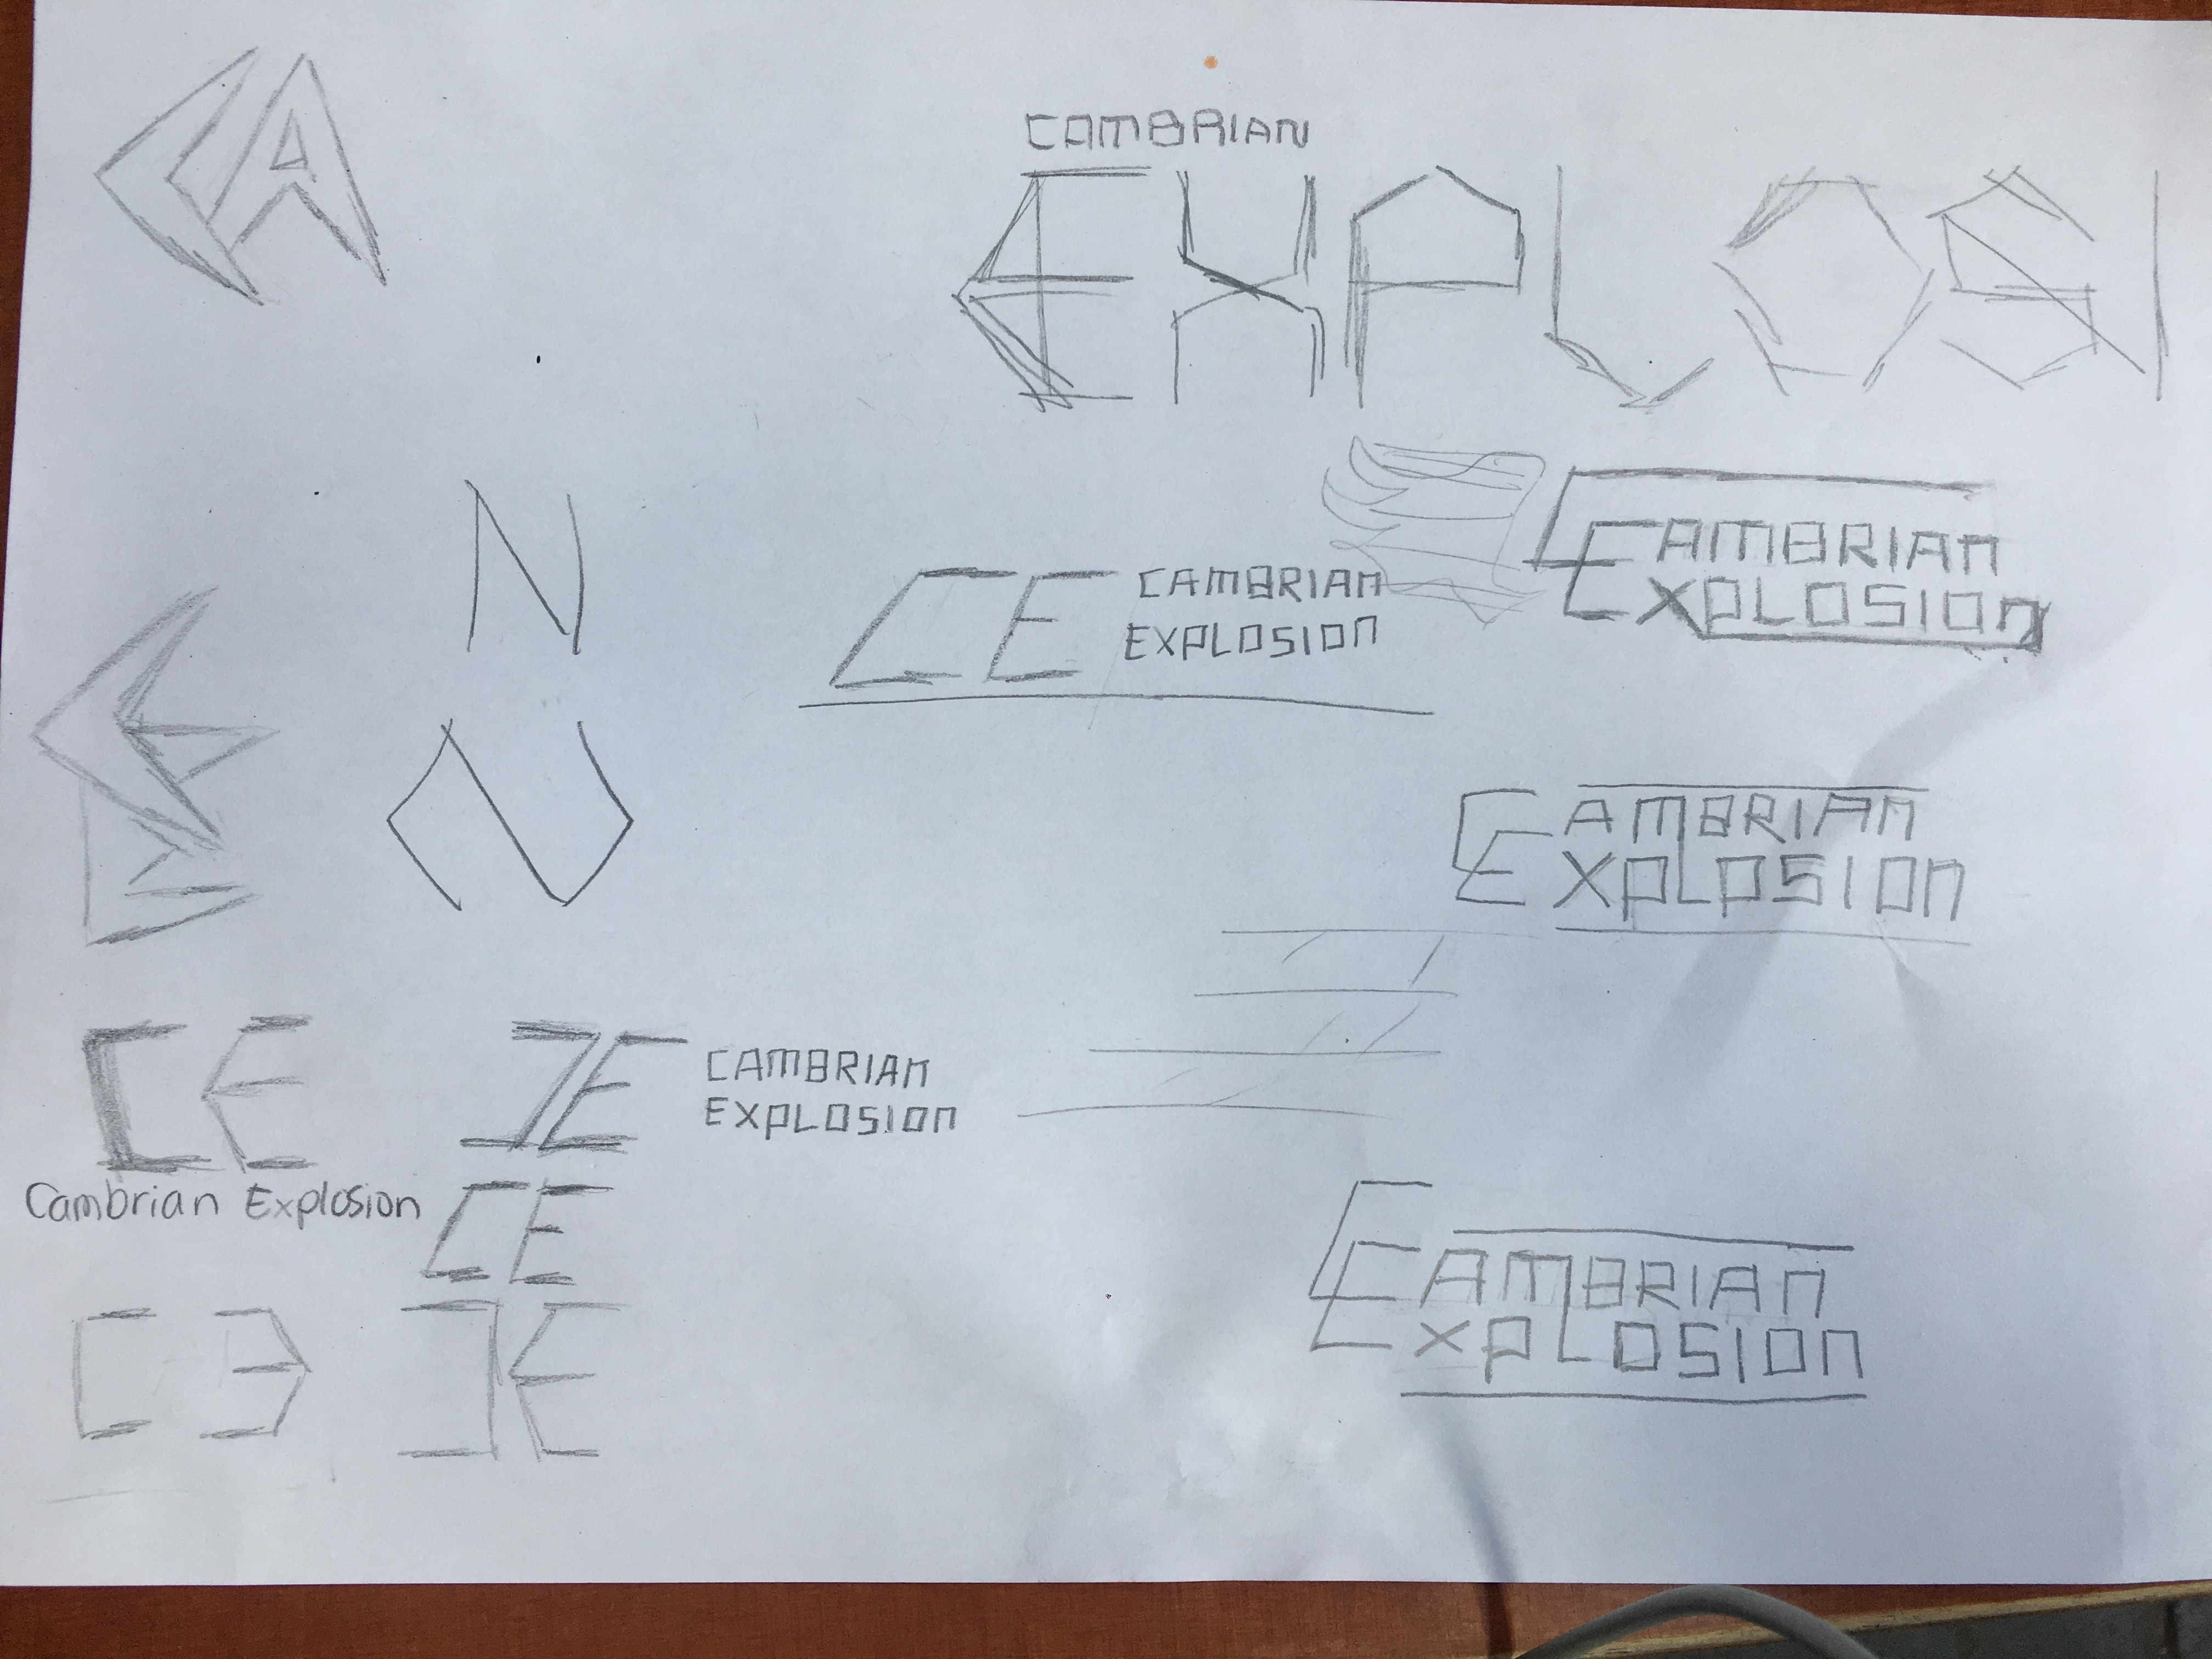 CA
CAMBRIAN
EXPLOSI
N
CE
CAMBRIAN
EXPLOSION
CAMBRIAN
EXPLOSION
CE
N
CAMBRIAN
EXPLOSION
CE
CE
CAMBRIAN
EXPLOSION
Cambrian Explosion
CE
CE
CE
CAMBRIAN
EXPLOSION